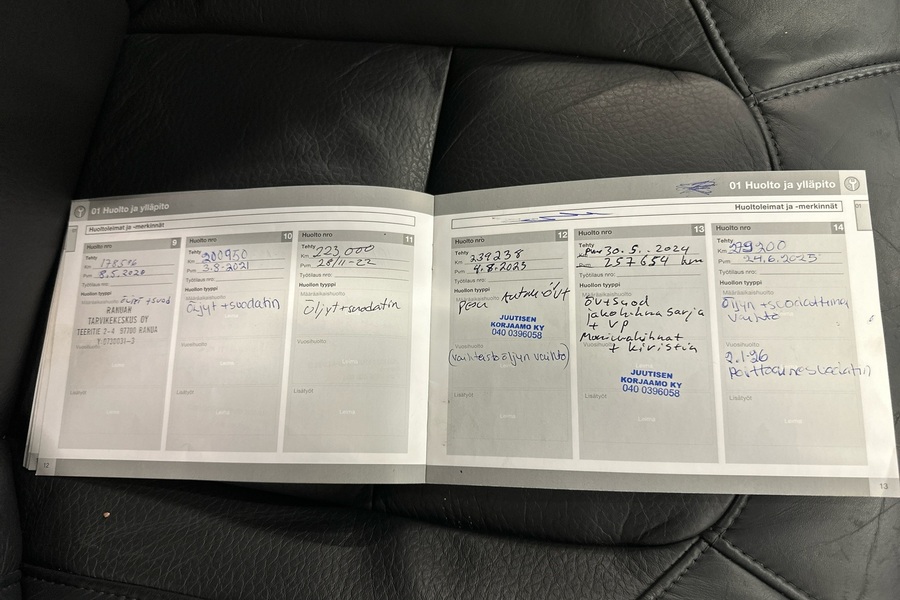 01 Huolto ja ylläpito
Huoltoleimat ja -merkinnät
Huolto nro 9
Tehty
Km
Pvm 8.5.2020
Työtilaus nro:
Huollon tyyppi
Määräaikaishuolto öljyt + suod
RANUAN
TARVIKEKESKUS OY
TEERITIE 2-4 97700 RANUA
Vuosihuolto
Lisätyöt
Leima
12
Huolto nro 10
Tehty
Km 200950
Pvm 3.8-2021
Työtilaus nro:
Huollon tyyppi
Määräaikaishuolto
öljyt + suodatin
Leima
Vuosihuolto
Lisätyöt
Leima
Huolto nro 11
Tehty
Km 223000
Pvm 28/11-22
Työtilaus nro:
Huollon tyyppi
Määräaikaishuolto
öljyt + suodatin
Vuosihuolto
Lisätyöt
Leima
01 Huolto ja ylläpito
Huoltoleimat ja -merkinnät
01
Huolto nro 12
Tehty
Km 239238
Pvm 9.8.2023
Työtilaus nro:
Huollon tyyppi
JUUTISEN
KORJAAMO KY
040 0396058
Vuosihuolto
(vaihteistoöljyn vaihto)
Lisätyöt
Leima
Huolto nro 13
Tehty
Pvm 30.5.-2024
257654 km
Työtilaus nro:
Huollon tyyppi
öv + suod
jakohihna sarja
+ VP
Monivahihnat
+ kiristin
JUUTISEN
KORJAAMO KY
040 0396058
Lisätyöt
Leima
Huolto nro 14
Tehty
Km
Pvm 24.6.2025
Työtilaus nro:
Huollon tyyppi
Määräaikaishuolto
öljyn + suodattimen
vaihto
Vuosihuolto
2.1-26
Polttoainesuodatin
Lisätyöt
Leima
13